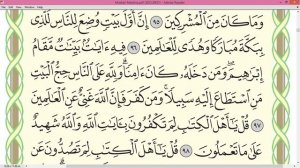 وَمَا كَانَ مِنَ ٱلْمُشْرِكِينَ ٩٥ إِنَّ أَوَّلَ بَيْتٍ وُضِعَ لِلنَّاسِ لَلَّذِى
بِبَكَّةَ مُبَارَكًا وَهُدًى لِّلْعَٰلَمِينَ ٩٦ فِيهِ ءَايَٰتٌۢ بَيِّنَٰتٌ مَّقَامُ
إِبْرَٰهِيمَ وَمَن دَخَلَهُۥ كَانَ ءَامِنًا وَلِلَّهِ عَلَى ٱلنَّاسِ حِجُّ ٱلْبَيْتِ
مَنِ ٱسْتَطَاعَ إِلَيْهِ سَبِيلًا وَمَن كَفَرَ فَإِنَّ ٱللَّهَ غَنِىٌّ عَنِ ٱلْعَٰلَمِينَ
٩٧ قُلْ يَٰٓأَهْلَ ٱلْكِتَٰبِ لِمَ تَكْفُرُونَ بِـَٔايَٰتِ ٱللَّهِ وَٱللَّهُ شَهِيدٌ
عَلَىٰ مَا تَعْمَلُونَ ٩٨ قُلْ يَٰٓأَهْلَ ٱلْكِتَٰبِ لِمَ تَصُدُّونَ عَن